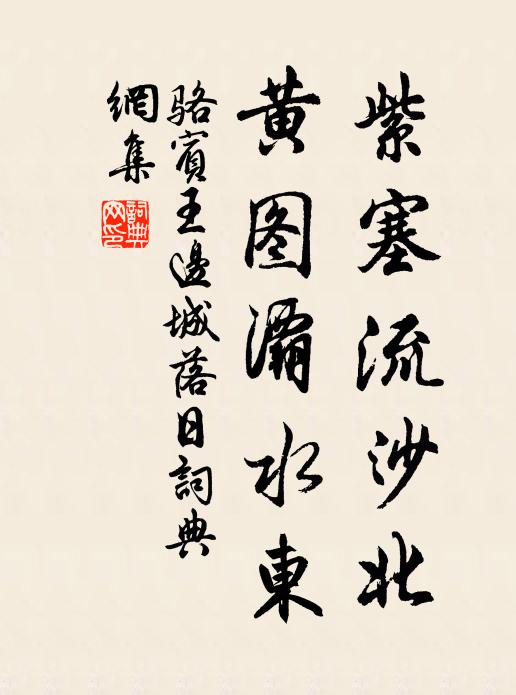 紫塞流沙北
黄图灞水東
骆賓王邊城落日詞典
網集
詞典
网印